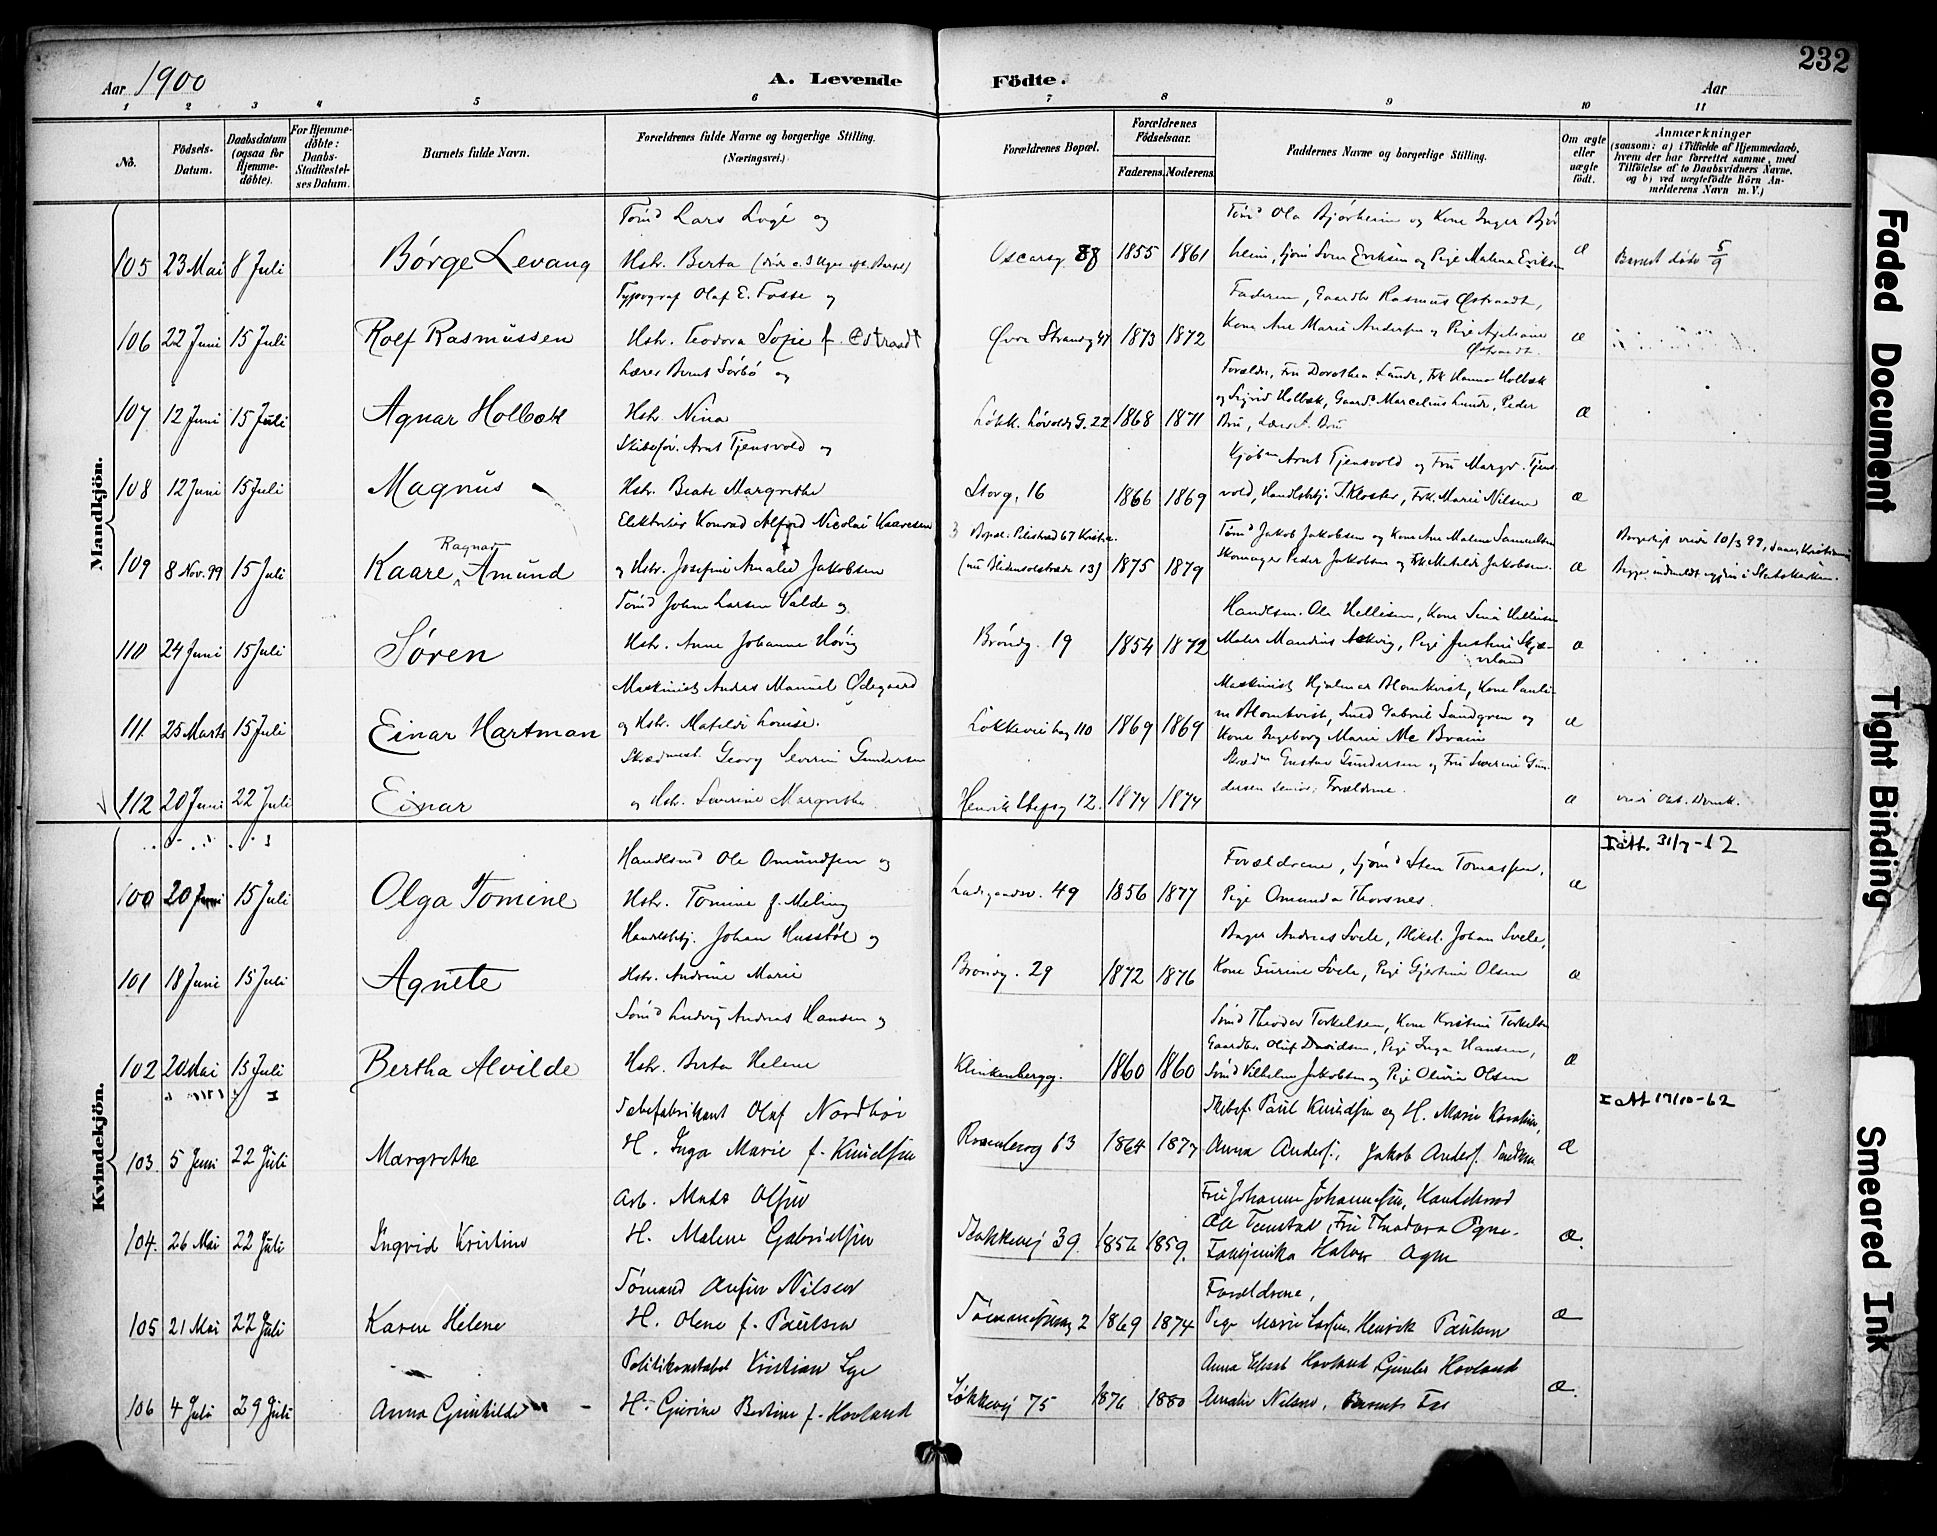 232
Aar 1900
A. Levende Födte.
Aar
1 2 3 4 5 6 7 8 9 10 11
No.
Födsels-Datum.
Daabsdatum (ogsaa for Hjemme-döbte).
For Hjemme-döbte: Daabs-Stadfæstel-ses Datum.
Barnets fulde Navn.
Forældrenes fulde Navne og borgerlige Stilling. (Næringsvei.)
Forældrenes Bopæl.
Forældrenes Födselsaar.
Faderens. Moderens.
Faddernes Navne og borgerlige Stilling.
Om ægte eller uægte födt.
Anmærkninger (saasom: a) i Tilfælde af Hjemmedaab, hvem der har forrettet samme, med Tilföielse af to Daabsvidners Navne. og b) ved uægtefödte Börn An-melderens Navn m. V.)
Mandkjön.
Tømd Lars Lugé og
Tømd Ola Bjørheim og Kone Inger Bjør
105 23 Mai 8 Juli Børge Levang Hstr. Berta Oscarsg. 88 1855 1861 heim, Sjøm Sven Eriksen og Pige Malena Eriksen æ Barnet døde 5/9
Typograf Olaf E. Fosse og
Faderen, Gaardbr Rasmus Østraadt,
106 22 Juni 15 Juli Rolf Rasmussen Hstr. Teodora Sofie f. Østraadt Øvre Strandg 47 1873 1872 Kone Ane Marie Andersen og Pige
Østraadt. æ
Lærer Bernt Sørbø og
Forældr, Fru Dorothea Lunde, Frk Hanna Holbæk
107 12 Juni 15 Juli Agnar Holbæk Hstr. Nina Løkk. G. 22 1868 1871 og Sigrid Holbæk, Gaardb. Marcelius Lunde, Peder
Bru, æ
Skibsfør. Arnt Tjensvold og
Kjøbm Arnt Tjensvold og Fru Margr. Tjens
108 12 Juni 15 Juli Magnus Hstr. Beate Margrethe Storg. 16 1866 1869 vold, Handlsbtj. T. Kloster, Frk. Marie Nilsen æ
Elektriker Konrad Alfred Nicolai Kaaresen
Bopæl. Pilestræd 67 Kristia.
Tømd Jakob Jakobsen og Kone Ane Malene Samuelsen
Borgerligt viede 10/3 99,
109 8 Nov. 99 15 Juli Kaare Ragnar Amund og Hstr. Josefine Amalie Jakobsen 1875 1879 Skomager Peder Jakobsen og Frk Matilde Jakobsen. æ Begge indmeldt igjen i Statskirken.
Tømd Johan Larsen Valde og
Handlsm. Ole Hellisen, Kone Sina Hellisen
110 24 Juni 15 Juli Søren Hstr. Anne Johanne Hørig Brøndg. 19 1854 1872 Maler Mandius Askvig, Pige Justine Skjæ-
veland æ
Maskinist Andr s Manuel Ødegaard
Maskinist Hjalmar Blomkvist, Kone Pauli-
111. 25 Marts 15 Juli Einar Hartman og Hstr. Matilde Louise. Løkkeveibag 110 1869 1869 ne Blomkvist, Smed Gabriel Sandgren og
Kone Ingeborg Marie Mc Braine æ
Skrædmest. Georg Severin Gundersen
Skræd Gustav Gundersen og Fru Severine Gun-
112 20 Juni 22 Juli Einar og Hstr. Severine Margrethe Henrik Stefsg 12. 1874 1874 dersen senior, Forældrene. æ
Kvindekjön.
Iatt. 31/7-12
Handlsmd Ole Omundsen og
Forældrene, Sjømd Sten Tomassen,
100 20 Juni 15 Juli Olga Tomine Hstr. Tomine f. Meling Ladegaardsv. 49 1856 1877 Pige Omunda Thorsnes. æ
Handlsbtj. Johan Husstøl og
Bager Andreas Svele, Bliksl. Johan Svele,
101 18 Juni 15 Juli Agnete Hstr. Andrine Marie Brøndg. 29 1872 1876 Kone Gurine Svele, Pige Gjertine Olsen æ
Sømd Ludvig Andreas Hansen og
Sømd Theodor Terkelsen, Kone Kristine Terkelsen
Gaardbr. Oluf Davidsen, Pige Inga Hansen,
102 20 Mai 15 Juli Bertha Alvilde Hstr. Berta Helene Klinkenbergg. 1860 1860 Sømd Vilhelm Jakobsen og Pige Olivia Olsen æ
I att 17/10-62
Sæbefabrikant Olaf Nordbøe
Skibsf. Paul Knudsen og H. Marie Karoline,
103. 5 Juni 22 Juli Margrethe H. Inga Marie f. Knudsen Rosenberg 13 1864 1877 Anna Anders., Jakob Anders. æ
Arb. Mads Olsen
Fru Johanne Johannesen, Handelsmd
104. 26 Mai 22 Juli Ingrid Kristine H. Malene Gabrielsen Løkkevej 39 1856 1859. Ole Tunstad, Fru Theodora Ogne.
Ogne æ.
Tømand Ansten Nilsen
Forældrene,
105 21 Mai 22 Juli Karen Helene H. Olene f. Paulsen 2 1869 1874 Pige Marie Larsen, Henrik Paulsen æ
Politikonstabel Kristian Lye
Anna Elisab Hovland, Gunder Hovland
106 4 Juli 29 Juli Anna Gunhilde H. Gurine Bertine f. Hovland Løkkevej 75 1876 1880 Amalie Nilsen, Barnets Far æ.
Faded Document
Tight Binding
Smeared Ink